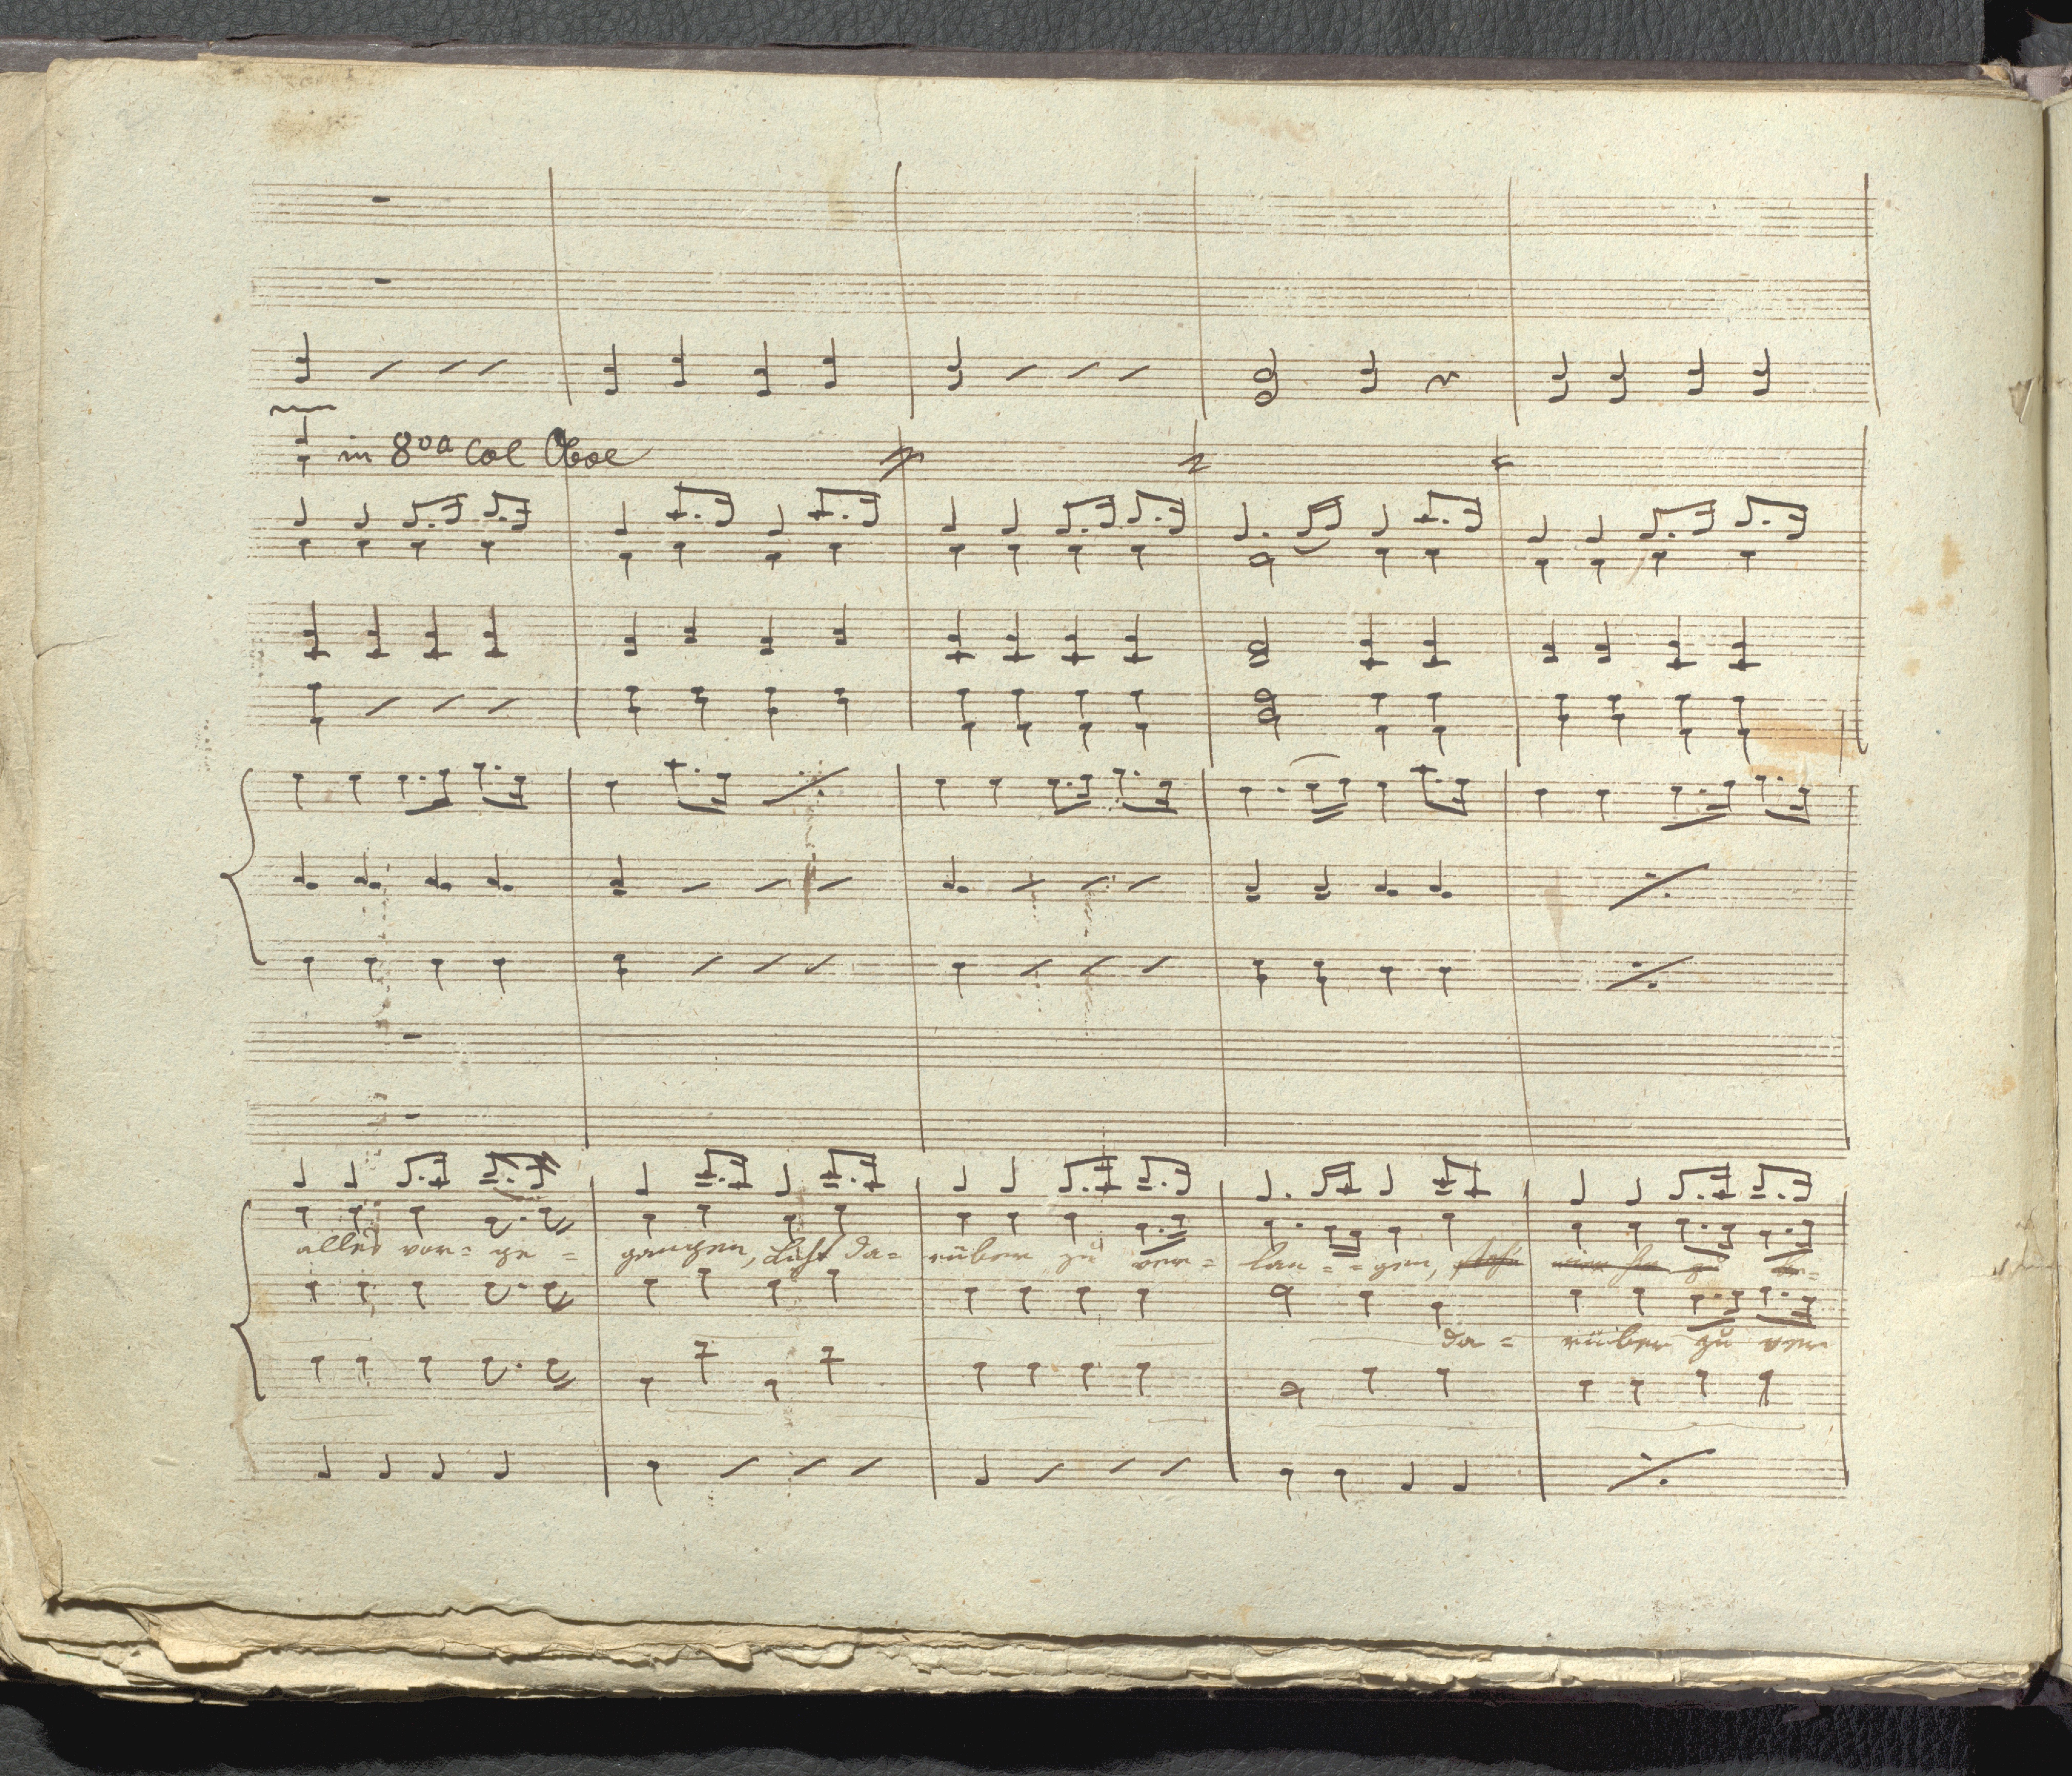 in 8va Col Oboe
alles vor= ge = gangen, Lust da= rüber zu ver= lan = = gen,
da = rüber zu ver